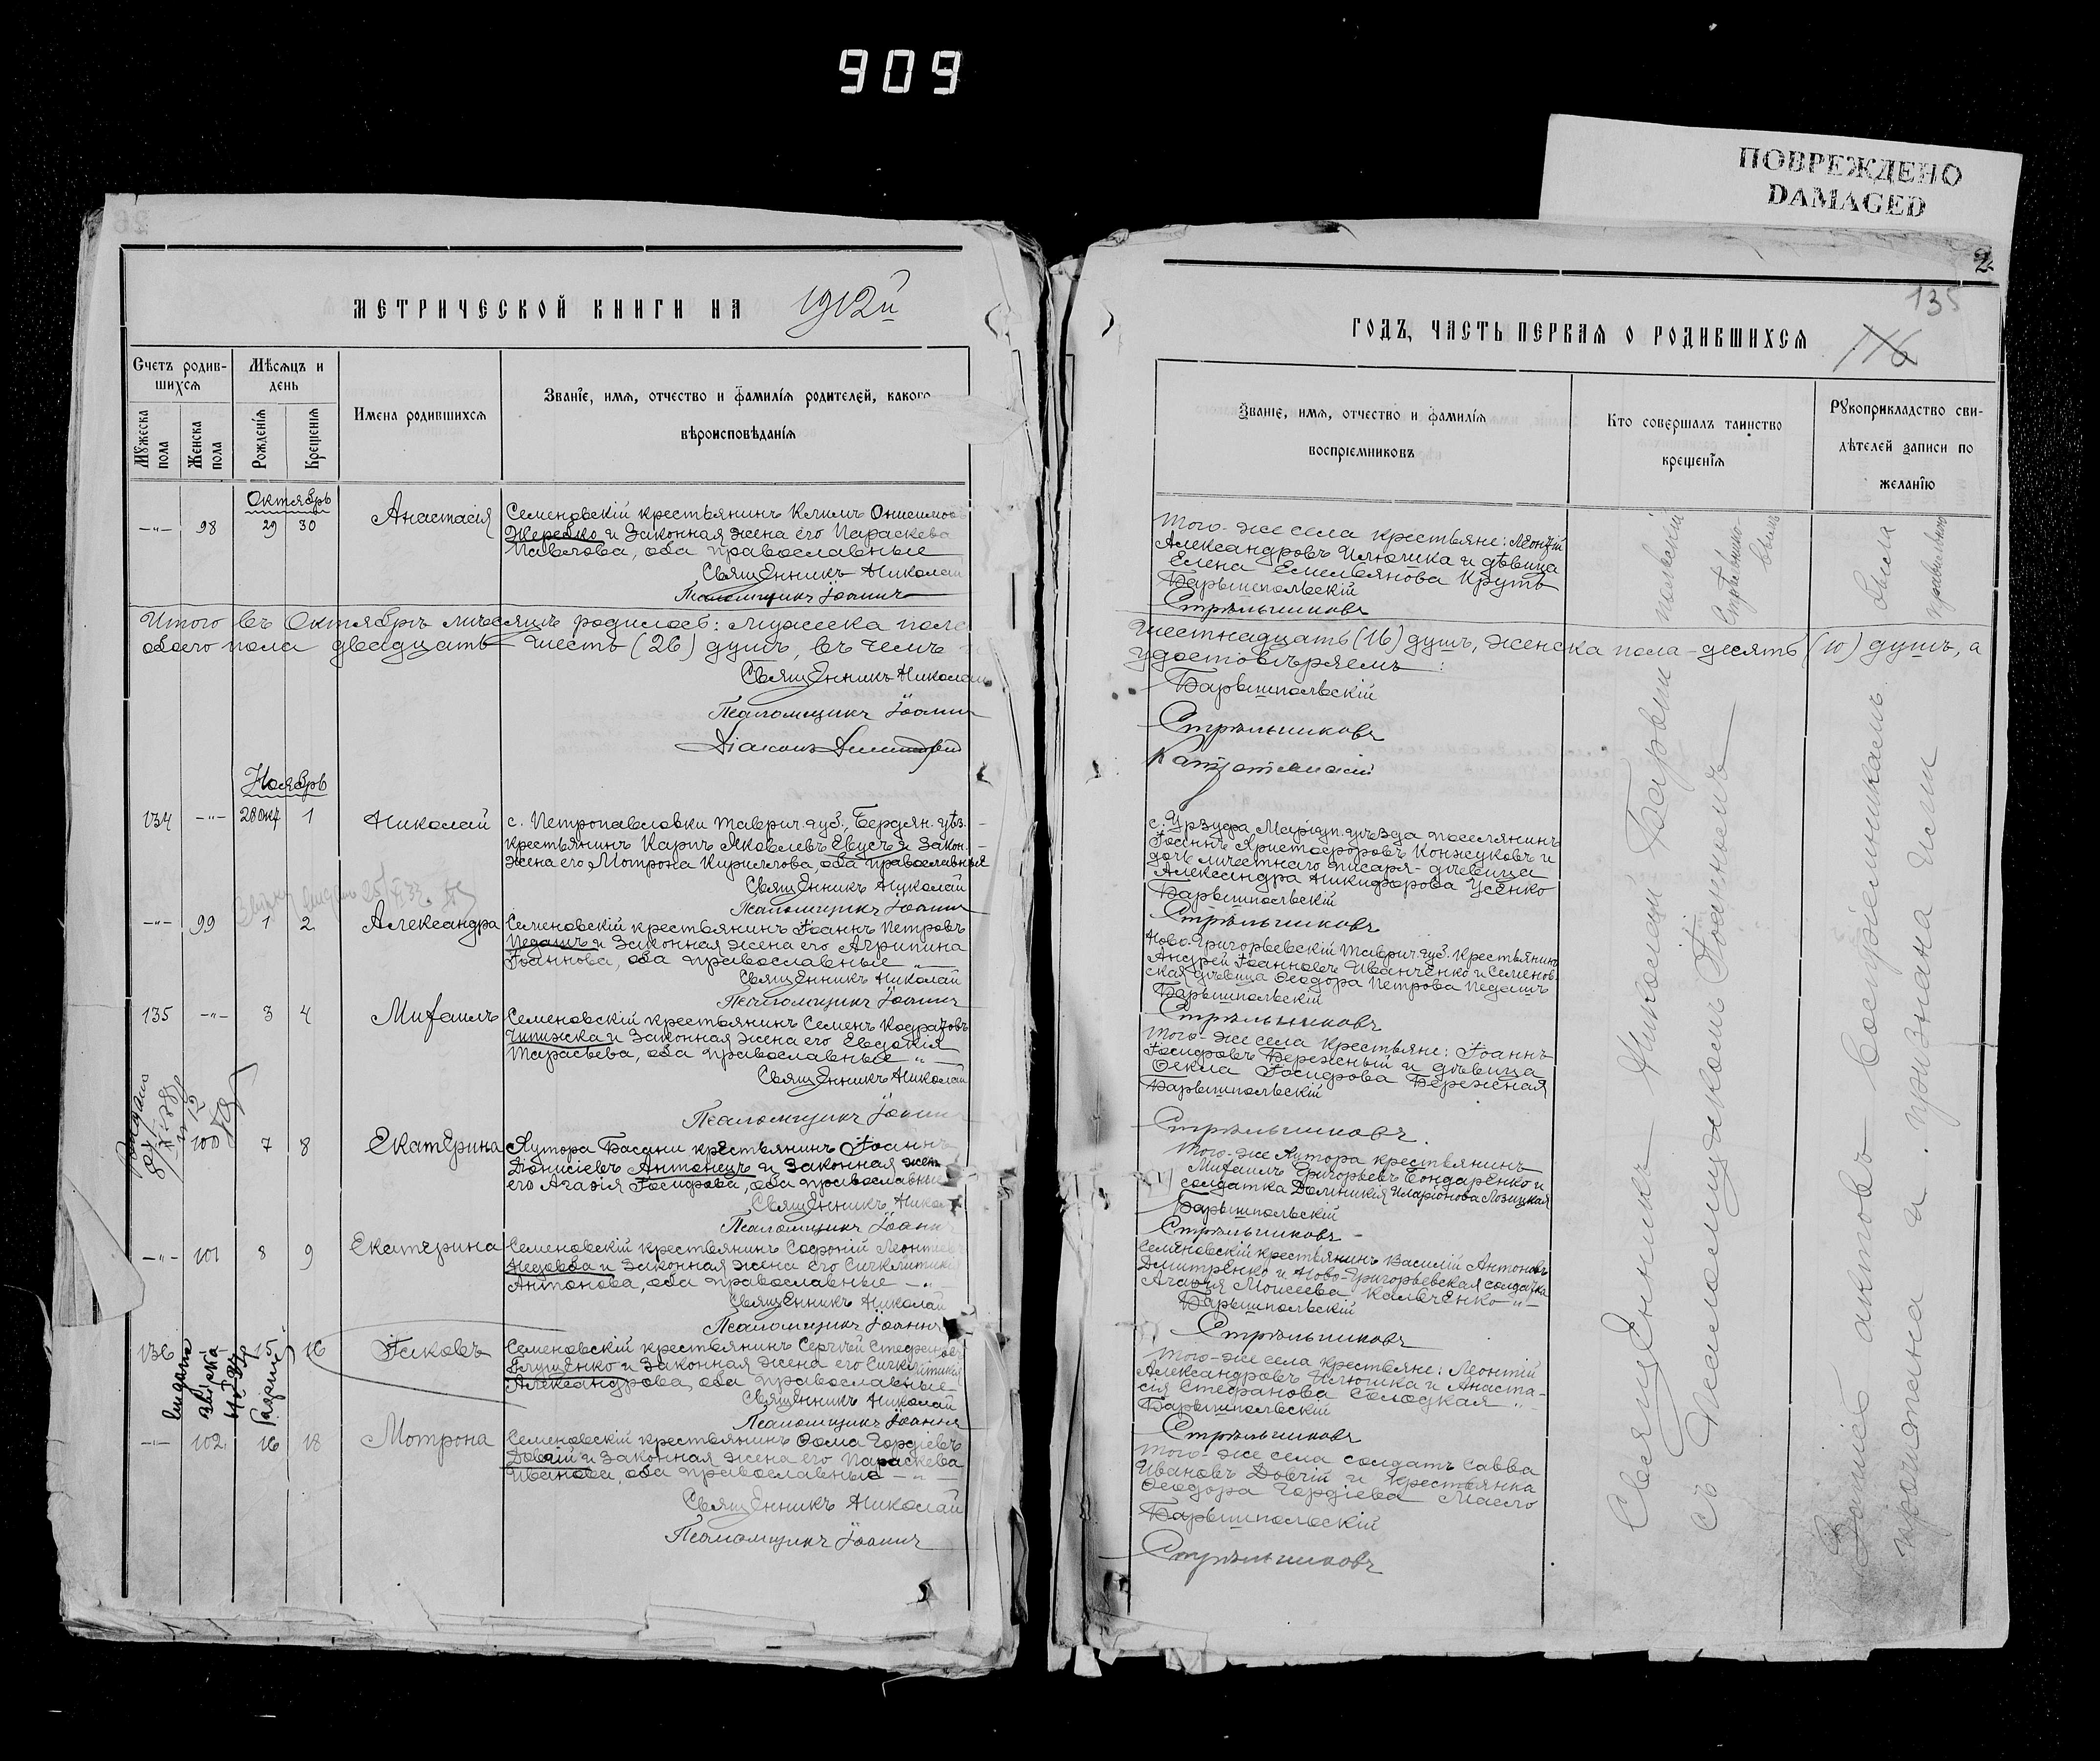 909
ПОВРЕЖДЕНО
DAMAGED
МЕТРИЧЕСКОЙ КНИГИ НА 1912й
Счетъ родив-
шихся
Мѣсяцъ и
день
Мужеска пола
Женска пола
Рожденія
Крещенія
Имена родившихся
Званіе, имя, отчество и фамилія родителей, какого
вѣроисповѣданія
Октябрь
—"— 98 29 30 Анастасія Семеновскій крестьянинъ Климъ Онисимовъ
Жеребко и законная жена его Параскева
Павлова, оба православные
Священникъ Николай
Псаломщикъ Іоаннъ
Итого въ Октябрѣ мѣсяцѣ родилось: мужеска пола
обоего пола двадцать шесть (26) душъ, въ чемъ
Священникъ Николай
Псаломщикъ Іоаннъ
Діаконъ Димитрій
Ноябрь
134 —"— 28 окт 1 Николай с. Петропавловки Таврич. губ., Бердян. уѣз.
крестьянинъ Карпъ Яковлевъ Евусъ и закон.
жена его Мотрона Кириллова, оба православные
Священникъ Николай
Псаломщикъ Іоаннъ
—"— 99 1 2 Александра Семеновскій крестьянинъ Іоаннъ Петровъ
Педашъ и законная жена его Агрипина
Іоаннова, оба православные —"—
Священникъ Николай
Псаломщикъ Іоаннъ
135 —"— 3 4 Михаилъ Семеновскій крестьянинъ Семенъ Кодратовъ
Чпижка и законная жена его Евдокія
Тарасьева, оба православные "
Священникъ Николай
Псаломщикъ Іоаннъ
100 7 8 Екатерина Хутора Басани крестьянинъ Іоаннъ
Діонисіевъ Антонецъ и законная жена
его Агафія Іосифова, оба православные
Священникъ Николай
Псаломщикъ Іоаннъ
—"— 101 8 9 Екатерина Семеновскій крестьянинъ Софроній Леонтіевъ
и законная жена его Сигклитикія
Антонова, оба православные —"
Священникъ Николай
Псаломщикъ Іоаннъ
136 15 16 Іаковъ Семеновскій крестьянинъ Сергѣй Стефановъ
Глущенко и законная жена его Сигклитикія
Александрова, оба православные
Священникъ Николай
Псаломщикъ Іоаннъ
—"— 102 16 18 Мотрона Семеновскій крестьянинъ Фома Гордіевъ
Довгій и законная жена его Параскева
Иванова, оба православные —"—
Священникъ Николай
Псаломщикъ Іоаннъ
2
135
116
ГОДЪ, ЧАСТЬ ПЕРВАЯ О РОДИВШИХСЯ
Званіе, имя, отчество и фамилія
воспріемниковъ
Кто совершалъ таинство
крещенія
Рукоприкладство сви-
дѣтелей записи по
желанію
Того-же села крестьяне: Леонтій
Александровъ Илюшка и дѣвица
Елена Емельянова Круть
Барышпольскій
Стрѣльниковъ
шестнадцать (16) душъ, женска пола - десять (10) душъ, а
удостовѣряемъ:
Барышпольскій
Стрѣльниковъ
с. Урзуфа, Маріуп. уѣзда поселянинъ
Іоаннъ Христофоровъ Конжуковъ и
дочь мѣстнаго писаря - дѣвица
Александра Никифорова Усенко
Барышпольскій
Стрѣльниковъ
Ново-Григорьевскій Таврич. губ. крестьянинъ
Андрей Іоанновъ Иванченко и Семенов-
ская дѣвица Феодора Петрова Педашъ
Барышпольскій
Стрѣльниковъ
Того-же села крестьяне: Іоаннъ
Іосифовъ Бережный и дѣвица
Фекла Іосифова Бережная
Барышпольскій
Стрѣльниковъ.
Того-же Хутора крестьянинъ
Михаилъ Григорьевъ Бондаренко и
солдатка Домникія Иларіонова Лозицкая
Барышпольскій
Стрѣльниковъ
Семеновскій крестьянинъ Василій Антоновъ
Дмитренко и Ново-Григорьевская солдатка
Агафія Моисеева Кальченко —"—
Барышпольскій
Стрѣльниковъ
Того-же села крестьяне: Леонтій
Александровъ Илюшка и Анаста-
сія Стефанова Солодкая —"—
Барышпольскій
Стрѣльниковъ
Того-же села солдатъ Савва
Ивановъ Довгій и крестьянка
Феодора Гордіева Масло
Барышпольскій
Стрѣльниковъ
Священникъ Николай Барышпольскій
съ Псаломщикомъ Іоанномъ Стрѣльниковымъ
Запись актовъ воспріемникамъ была
прочитана и признана ими правильною